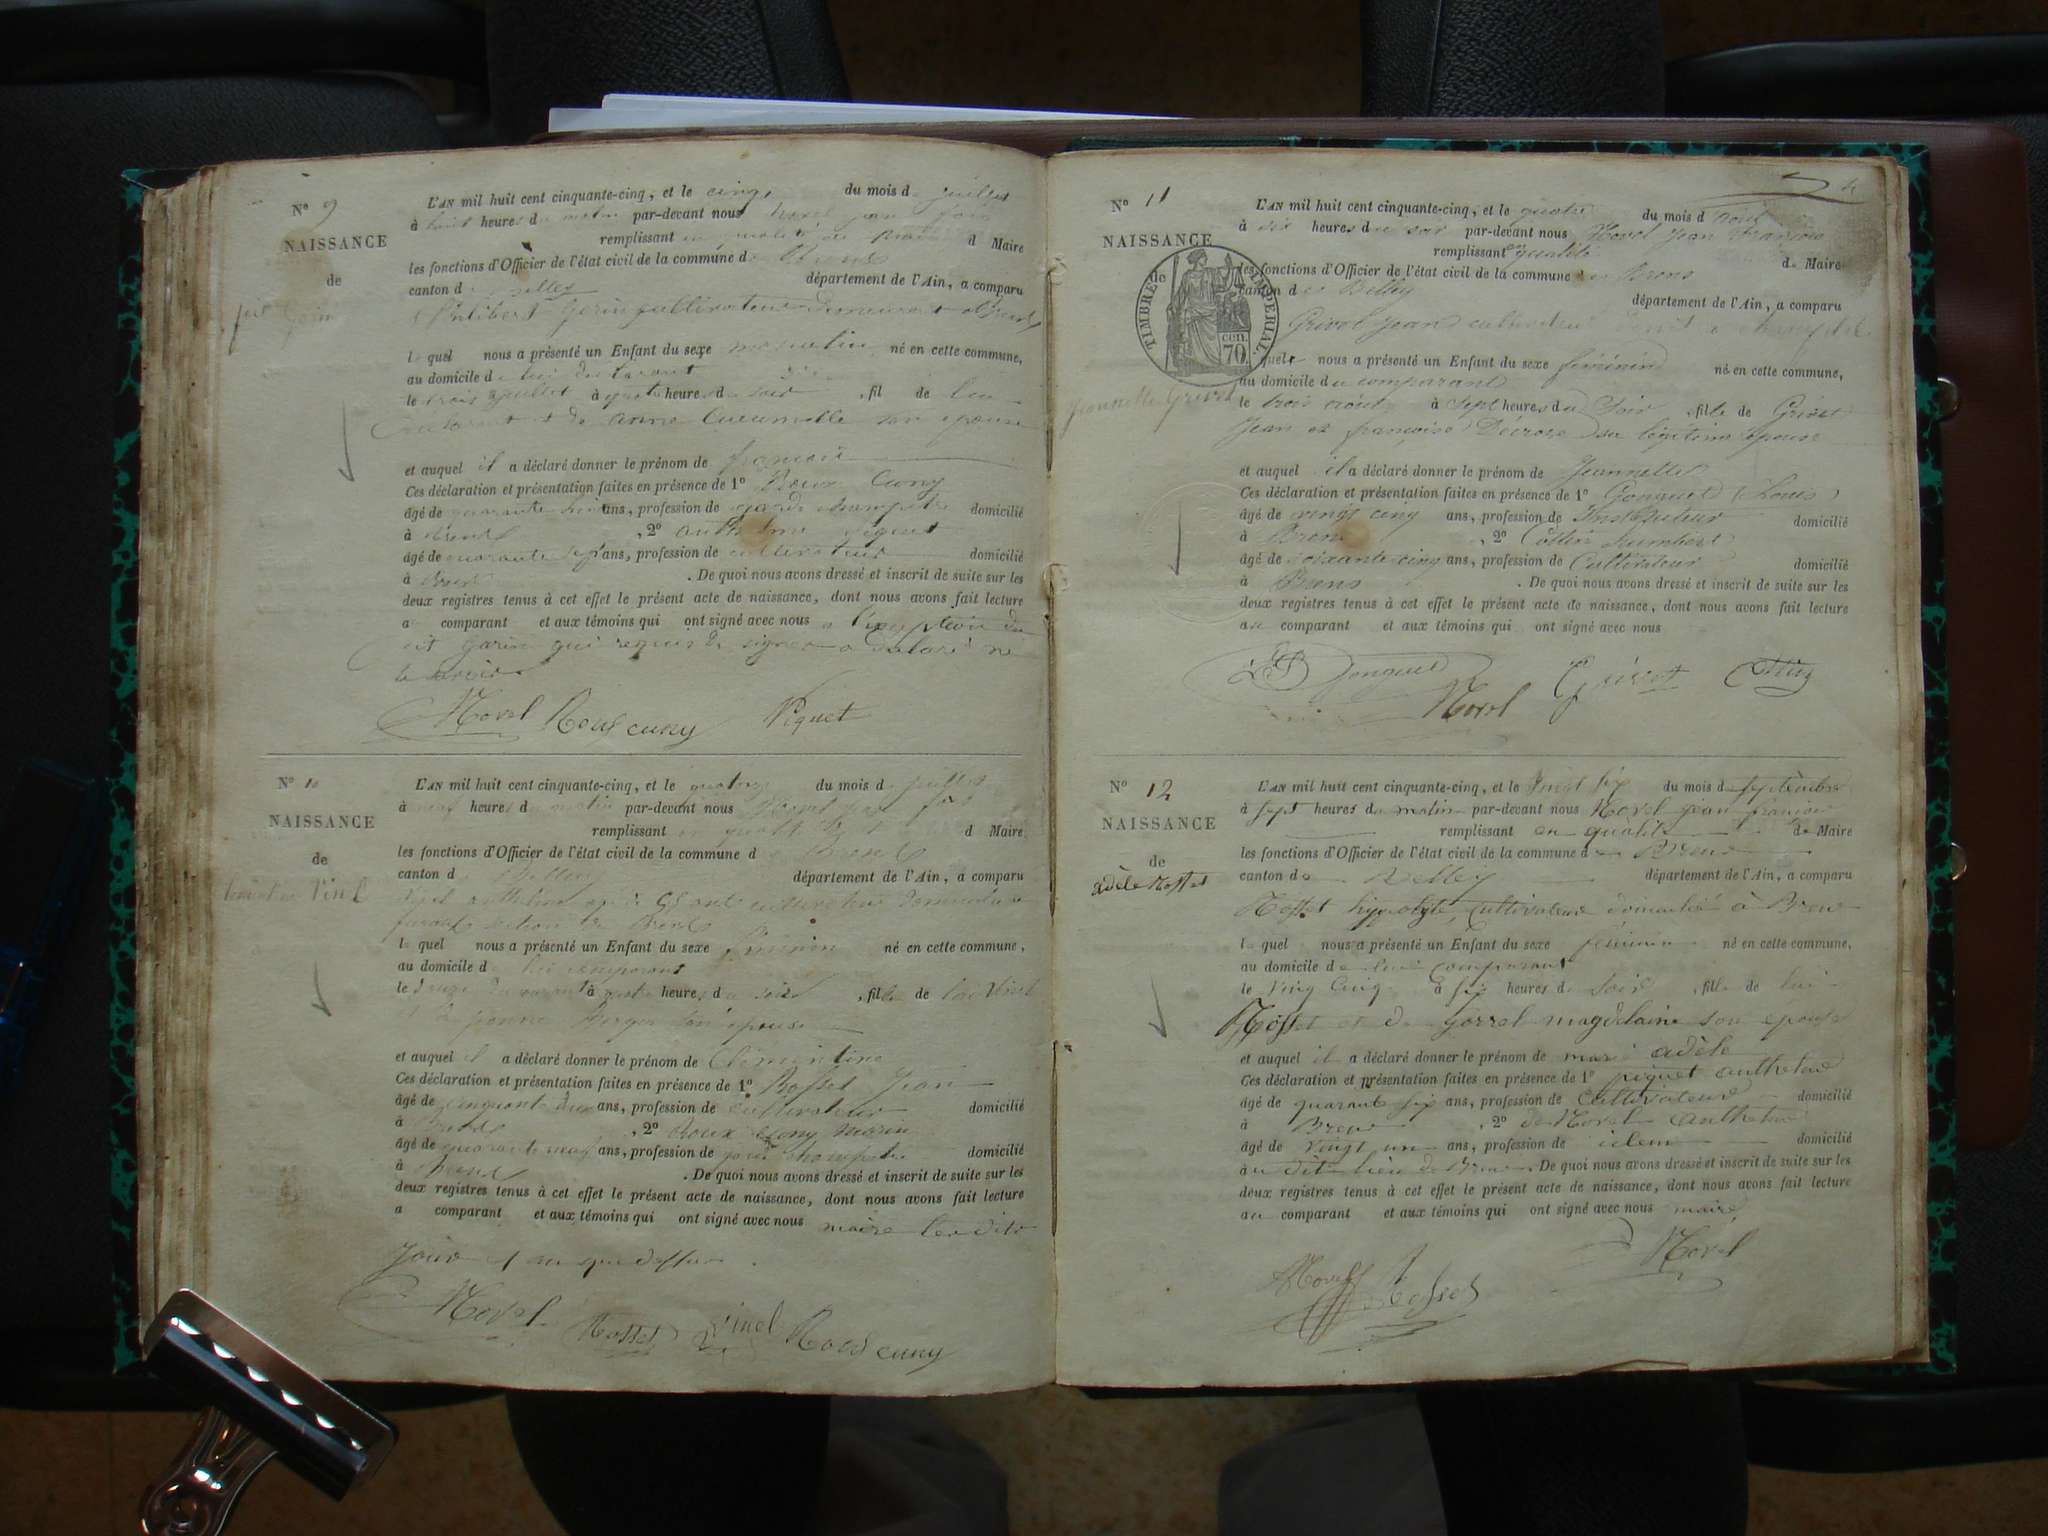 N° 9
NAISSANCE
de
L'AN mil huit cent cinquante-cinq, et le cinq du mois de juillet
à huit heures du matin par-devant nous Morel jean
remplissant en qualité de d Maire
les fonctions d'Officier de l'état civil de la commune de Brens
canton de Belley département de l'Ain, a comparu
Philibert Gorin cultivateur demeurant à Brens
lequel nous a présenté un Enfant du sexe masculin né en cette commune,
au domicile de lui déclarant
le trois juillet à quatre heures du soir, fil de lui
déclarant et de anne Cucumelle son épouse
et auquel il a déclaré donner le prénom de françois
Ces déclaration et présentation faites en présence de 1° Roux Cuny
âgé de quarante huit ans, profession de garde champêtre domicilié
à Brens, 2° anthelme piquet
âgé de quarante sept ans, profession de cultivateur domicilié
à Brens. De quoi nous avons dressé et inscrit de suite sur les
deux registres tenus à cet effet le présent acte de naissance, dont nous avons fait lecture
a comparant et aux témoins qui ont signé avec nous a l'exception du
dit Gorin qui requis de signer a déclaré ne
le savoir
Morel Roux cuny Piquet
N° 10
NAISSANCE
de
Clémentine Vinel
L'AN mil huit cent cinquante-cinq, et le quatorze du mois de juillet
à neuf heures du matin par-devant nous Morel jean fois
remplissant en qualité d Maire
les fonctions d'Officier de l'état civil de la commune de Brens
canton de Belley département de l'Ain, a comparu
Vinel anthelme agé de ans cultivateur domicilié a
section de Brens
lequel nous a présenté un Enfant du sexe féminin né en cette commune,
au domicile de lui comparant
le du courant à quatre heures du soir, fille de lui Vinel
et de jeanne Berger son épouse
et auquel il a déclaré donner le prénom de Clémentine
Ces déclaration et présentation faites en présence de 1° Rosset Jean
âgé de cinquante deux ans, profession de cultivateur domicilié
à Brens, 2° Roux Cony
âgé de quarante neuf ans, profession de garde champetre domicilié
à Brens. De quoi nous avons dressé et inscrit de suite sur les
deux registres tenus à cet effet le présent acte de naissance, dont nous avons fait lecture
a comparant et aux témoins qui ont signé avec nous maire les dits
jour et an que dessus.
Morel Rosset Vinel Roux cuny
N° 11
NAISSANCE
de
TIMBRE IMPERIAL
70 CEN.
Jeannette Grivet
L'AN mil huit cent cinquante-cinq, et le quatre du mois d août
à six heures du soir par-devant nous Morel Jean François
remplissant qualité de Maire
les fonctions d'Officier de l'état civil de la commune de Brens
canton de Belley département de l'Ain, a comparu
Grivet Jean cultivateur
lequel nous a présenté un Enfant du sexe féminin né en cette commune,
au domicile du comparant
le trois août à sept heures du soir, fille de Grivet
Jean et françoise Décroze sa légitime épouse
et auquel il a déclaré donner le prénom de Jeannette
Ces déclaration et présentation faites en présence de 1° Gonguet (Louis)
âgé de vingt cinq ans, profession de Instituteur domicilié
à Brens, 2° Cottin humbert
âgé de soixante-cinq ans, profession de Cultivateur domicilié
à Brens. De quoi nous avons dressé et inscrit de suite sur les
deux registres tenus à cet effet le présent acte de naissance, dont nous avons fait lecture
au comparant et aux témoins qui ont signé avec nous
Gonguet Morel Grivet Cottin
N° 12
NAISSANCE
de
adèle Rosset
L'AN mil huit cent cinquante-cinq, et le vingt six du mois de septembre
à sept heures du matin par-devant nous Morel jean françois
remplissant en qualité de Maire
les fonctions d'Officier de l'état civil de la commune de Brens
canton de Belley département de l'Ain, a comparu
Rosset hypolyte, cultivateur domicilié à Brens
lequel nous a présenté un Enfant du sexe féminin né en cette commune,
au domicile de lui comparant
le vingt cinq à six heures du soir, fille de lui
Rosset et de gorrel magdelaine son épouse
et auquel il a déclaré donner le prénom de marie adèle
Ces déclaration et présentation faites en présence de 1° piquet anthelme
âgé de quarante six ans, profession de cultivateur domicilié
à Brens, 2° de Morel anthelme
âgé de vingt un ans, profession de idem domicilié
au dit lieu de Brens. De quoi nous avons dressé et inscrit de suite sur les
deux registres tenus à cet effet le présent acte de naissance, dont nous avons fait lecture
au comparant et aux témoins qui ont signé avec nous maire
Morel Rosset Morel